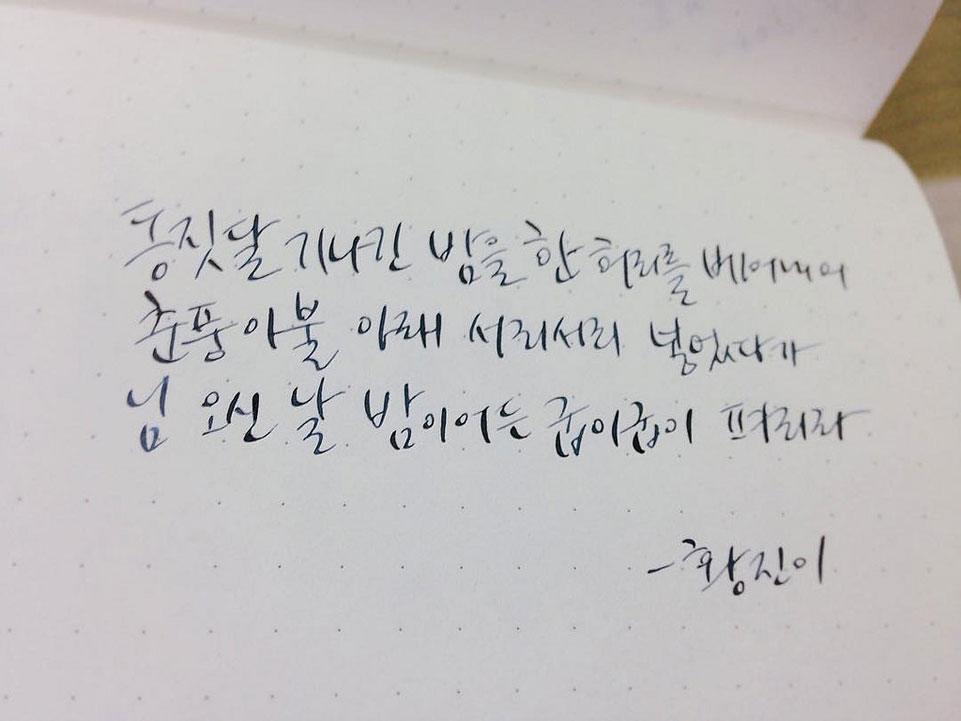 동짓달 기나긴 밤을 한 허리를 베어내어
춘풍이불 아래 서리서리 넣었다가
님 오신 날 밤이어든 굽이굽이 펴리라
-황진이